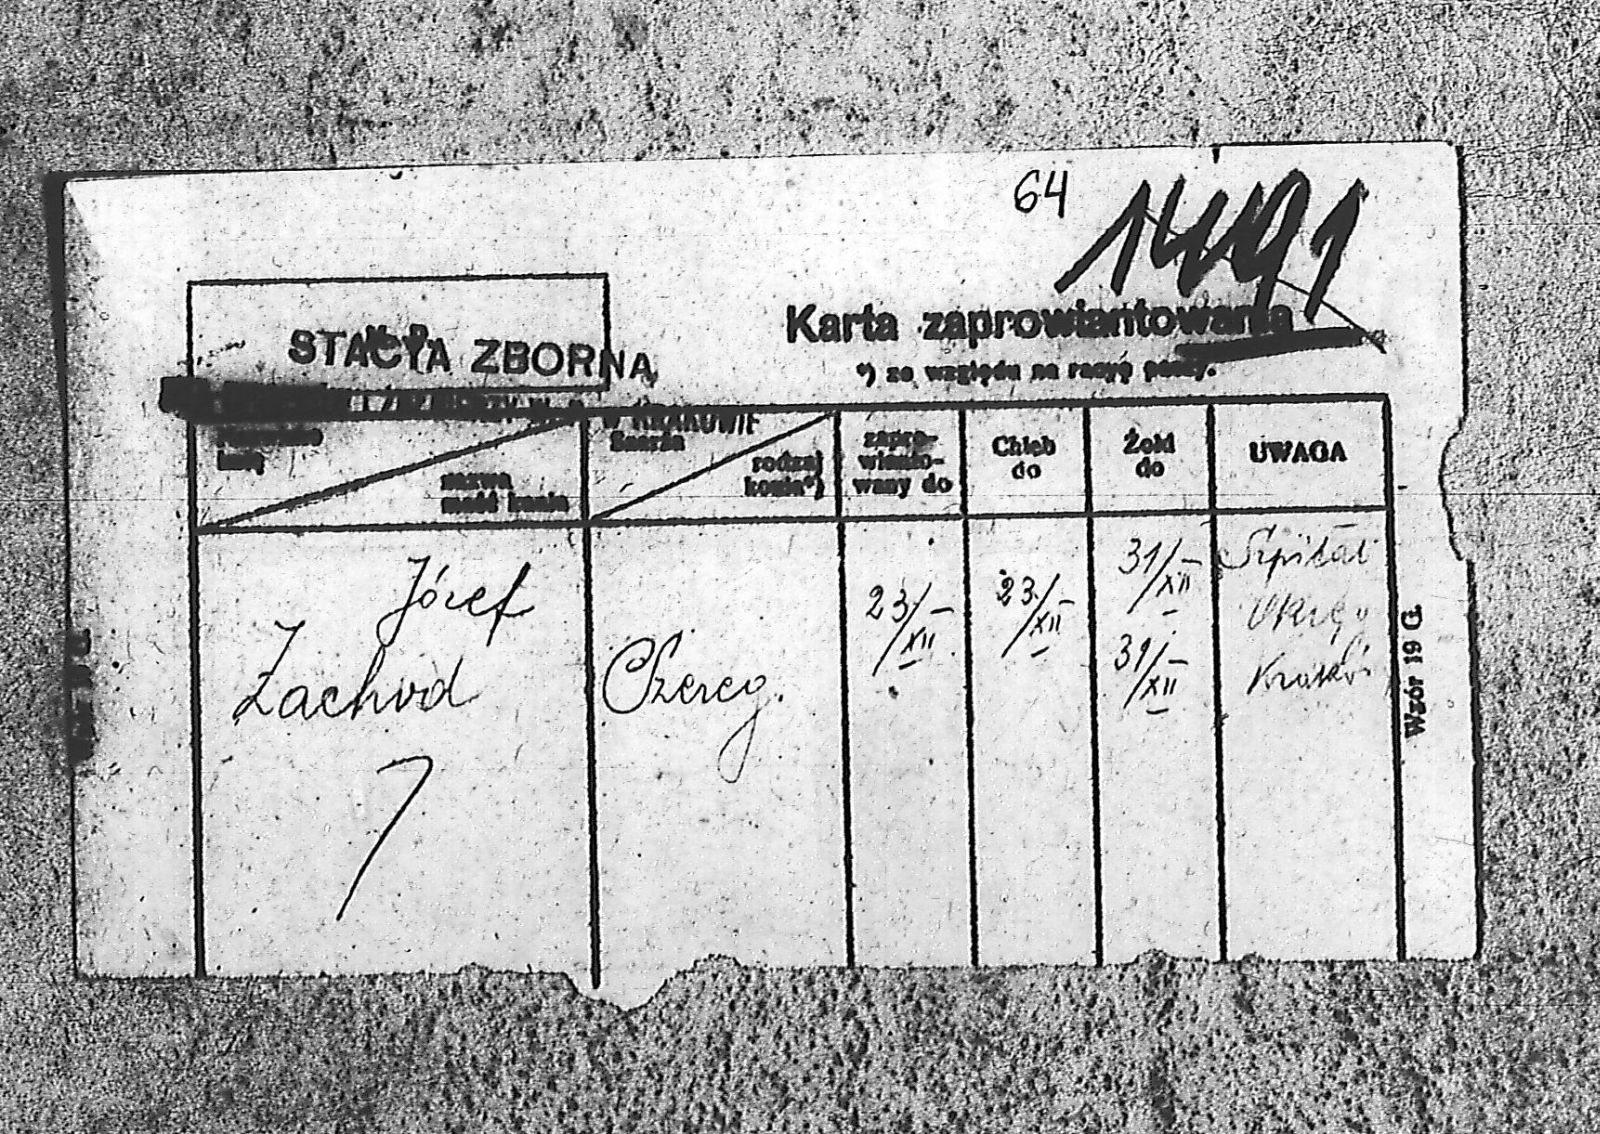 64
1491
STACYA ZBORNA
W KRAKOWIE
Karta zaprowiantowania
*) ze względu na racyę paszy.
Nazwisko
imię
nazwa
maść konia
Szarża
rodzaj
konia*)
zapro-
wianto-
wany do
Chleb
do
Żołd
do
UWAGA
Józef
Zachod
Szereg.
23/XII
23/XII
31/XII
31/XII
Szpital
Okręg
Kraków
Wzór 19 G.